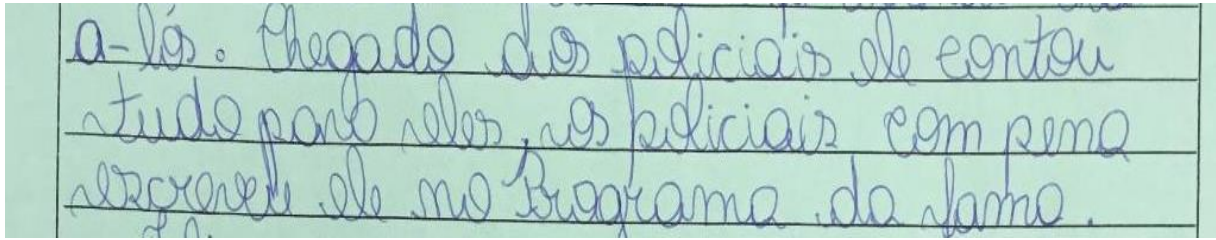 a-lós. Chegado dos policiais ele contou
tudo para eles, os policiais com pena
escrevele ele no Programa da fama.